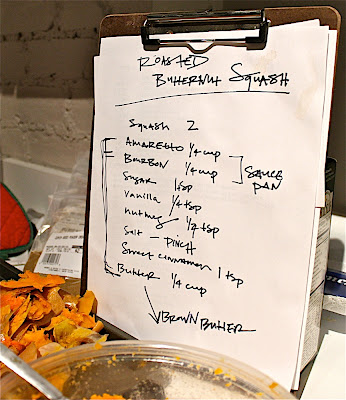 ROASTED
BUTTERNUT SQUASH
SQUASH 2
AMARETTO 1/4 cup
BOURBON 1/4 cup
SAUCE
PAN
SUGAR 1 tsp
Vanilla 1/4 tsp
nutmeg 1/2 tsp
SALT - PINCH
Sweet cinnamon 1 tsp
BUTTER 1/4 cup
BROWN BUTTER